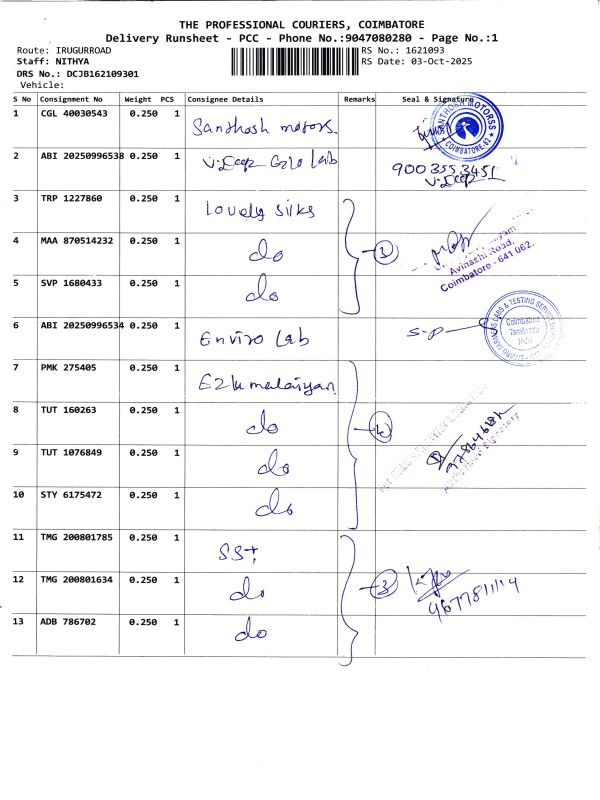 THE PROFESSIONAL COURIERS, COIMBATORE
Delivery Runsheet - PCC - Phone No.:9047080280 - Page No.:1
Route: IRUGURROAD
RS No.: 1621093
Staff: NITHYA
RS Date: 03-Oct-2025
DRS No.: DCJB162109301
Vehicle:
S No Consignment No Weight PCS Consignee Details Remarks Seal & Signature
1 CGL 40030543 0.250 1 Santhosh motors
COIMBATORE-62
2 ABI 20250996538 0.250 1 Lab
900 355 3451
3 TRP 1227860 0.250 1 Lovely silks
4 MAA 870514232 0.250 1 do
Avinashi Road,
Coimbatore - 641 062.
5 SVP 1680433 0.250 1 do
6 ABI 20250996534 0.250 1 Enviro Lab
S-P
LABS & TESTING SERVICE
Coimbatore
Tamilnadu
INDIA
7 PMK 275405 0.250 1
8 TUT 160263 0.250 1 do
9 TUT 1076849 0.250 1 do
10 STY 6175472 0.250 1 do
11 TMG 200801785 0.250 1
12 TMG 200801634 0.250 1 do
3
13 ADB 786702 0.250 1 do